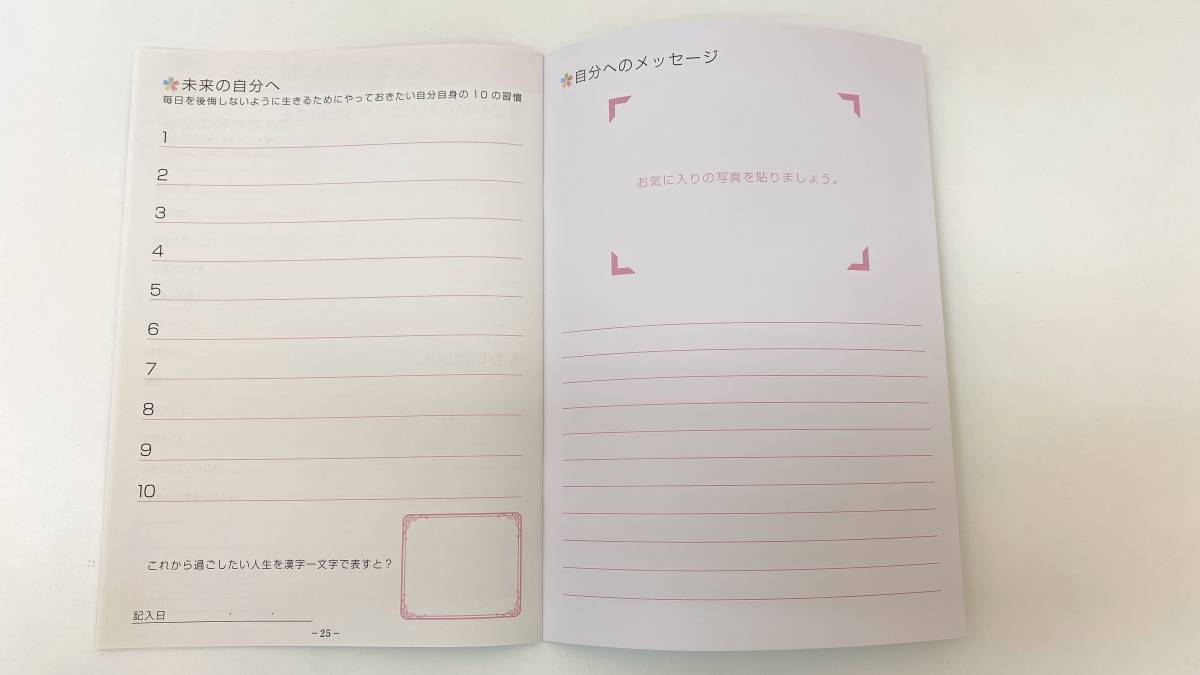 未来の自分へ
毎日を後悔しないように生きるためにやっておきたい自分自身の10の習慣
1
2
3
4
5
6
7
8
9
10
これから過ごしたい人生を漢字一文字で表すと?
記入日 ・ ・
－25－
自分へのメッセージ
お気に入りの写真を貼りましょう。